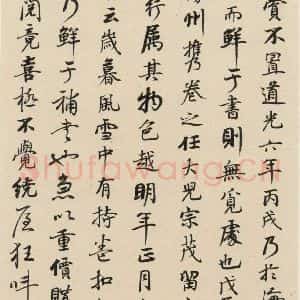 賞不置道光六年丙戌乃於海
而鮮于書則無覓處也戊
州攜卷之任大兒宗茂留
行属其物色越明年正月
云歲暮風雪中有持卷扣
乃鮮于補書也急以重價購
閱竟喜極不覺繞屋狂叫
Shufawang.cn